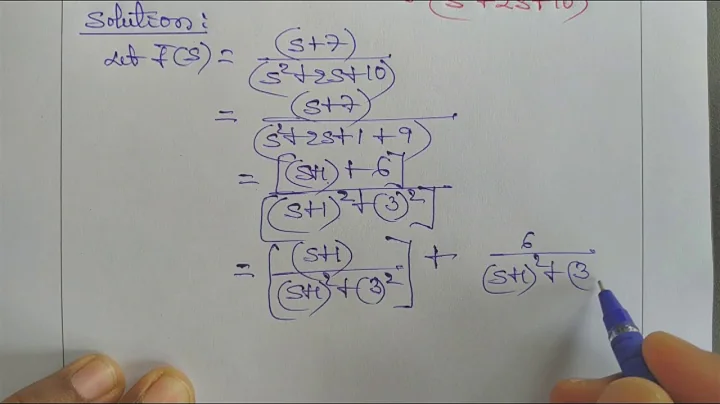 (s+2s+10)
Solution:
Let F(s) = (s+7)
(s²+2s+10)
= (s+7)
(s²+2s+1+9)
= [(s+1)+6]
[(s+1)²+(3)²]
= [(s+1) / (s+1)²+(3)²] + 6 / (s+1)²+(3